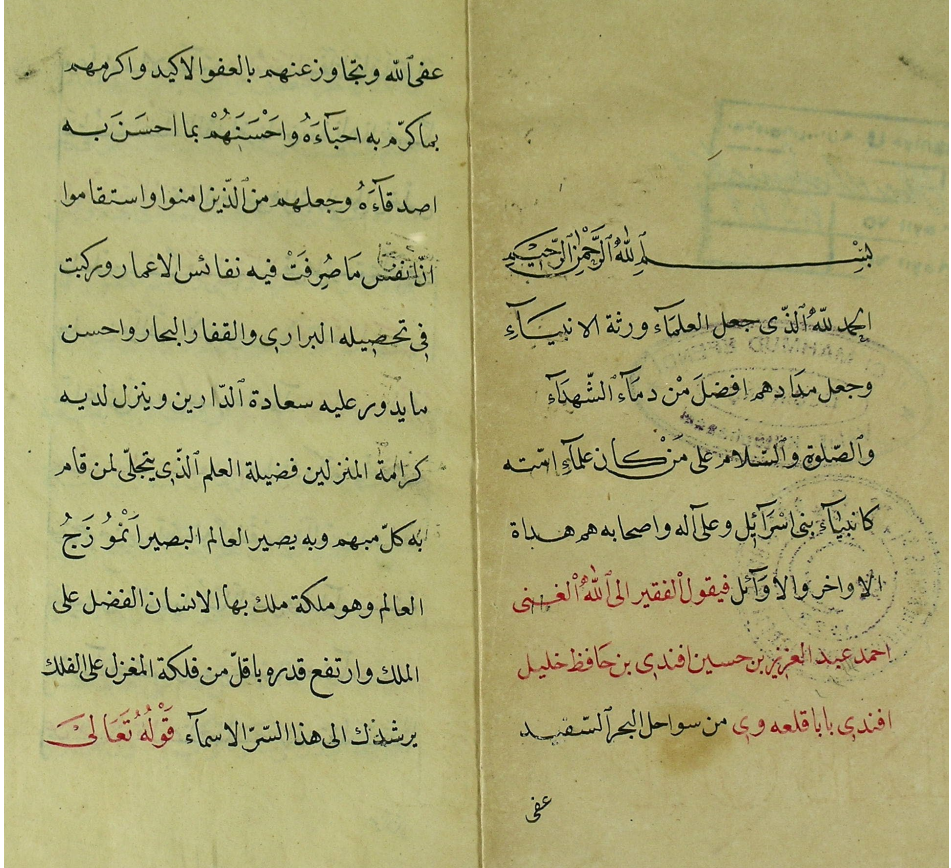 بِسْمِ ٱللّٰهِ ٱلرَّحْمٰنِ ٱلرَّحِيْمِ
الحمد للّٰه ٱلذّى جعل العلمآء ورثة الانبيآء
وجعل مدادهم افضلَ مْن دمآء ٱلشّهدآء
وٱلصّلوة وٱلسّلام على مَنْ كان علمآء امّته
كانبيآء بنى اسْرآئيل وعلى آله واصحابه هم هداة
الاواخر والاوآئل فيقول الفقير الى ٱللّٰه الْغنى
احمد عبد العزيز بن حسين افندى بن حافظ خليل
افندى بابا قلعه وى من سواحل البحر ٱلسّفيد
عفى
عفى ٱللّٰه وتجاوز عنهم بالعفو الاكيد واكرمهم
بما كرّم به احبّآءَهُ واَحْسَنَهُمْ بما احسَنَ به
اصدقآءَهُ وجعلهم من ٱلذّين امنوا واستقاموا
انّ انفس مَا صُرِفَتْ فيه نفائس الاعمار وركبت
فى تحصيله البرارى والقفار البحار واحسن
ما يدور عليه سعادة ٱلدّارين وينزل لديه
كرامة المنزلين فضيلة العلم ٱلذّى يتجلّى لمن قام
به كلّ مبهم وبه يصير العالم البصير اَنْمُوزَجُ
العالم وهو ملكة ملك بها الانسان الفضل على
الملك وارتفع قدره باقلّ من فلكة المغزل على الفلك
يرشدك الى هذا ٱلسّرّ الاسمآء قَوْلُهُ تَعَالىَ